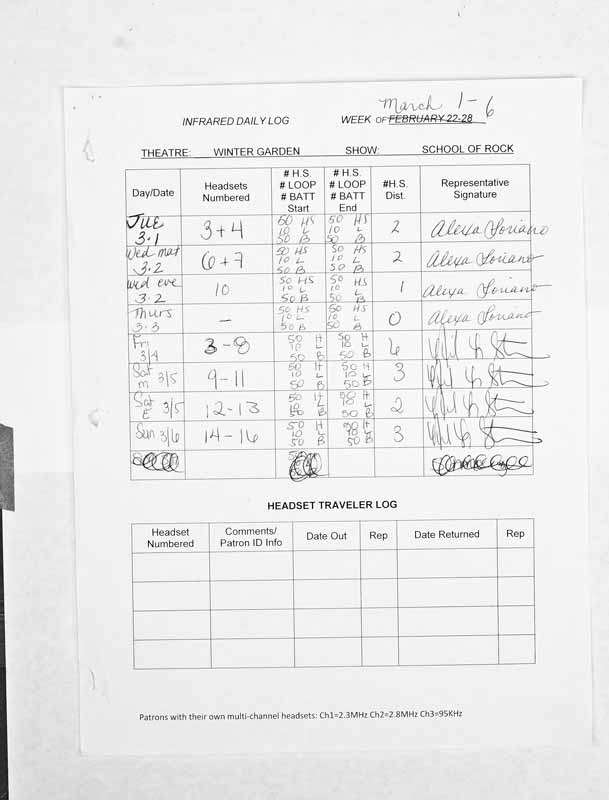 March 1-6
INFRARED DAILY LOG WEEK OF FEBRUARY 22-28
THEATRE: WINTER GARDEN SHOW: SCHOOL OF ROCK
Day/Date Headsets Numbered # H.S. # LOOP # BATT Start # H.S. # LOOP # BATT End #H.S. Dist. Representative Signature
Tue 3.1 3+4 50 HS 10 L 50 B 50 HS 10 L 50 B 2 Alexa Soriano
Wed mat 3.2 6+7 50 HS 10 L 50 B 50 HS 10 L 50 B 2 Alexa Soriano
Wed eve 3.2 10 50 HS 10 L 50 B 50 HS 10 L 50 B 1 Alexa Soriano
Thurs 3.3 – 50 HS 10 L 50 B 50 HS 10 L 50 B 0 Alexa Soriano
Fri 3/4 3-8 50 H 10 L 50 B 50 H 10 L 50 B 6
Sat m 3/5 9-11 50 H 10 L 50 B 50 H 10 L 50 B 3
Sat E 3/5 12-13 50 H 10 L 50 B 50 H 10 L 50 B 2
Sun 3/6 14-16 50 H 10 L 50 B 50 H 10 L 50 B 3
HEADSET TRAVELER LOG
Headset Numbered Comments/ Patron ID Info Date Out Rep Date Returned Rep
Patrons with their own multi-channel headsets: Ch1=2.3MHz Ch2=2.8MHz Ch3=95KHz